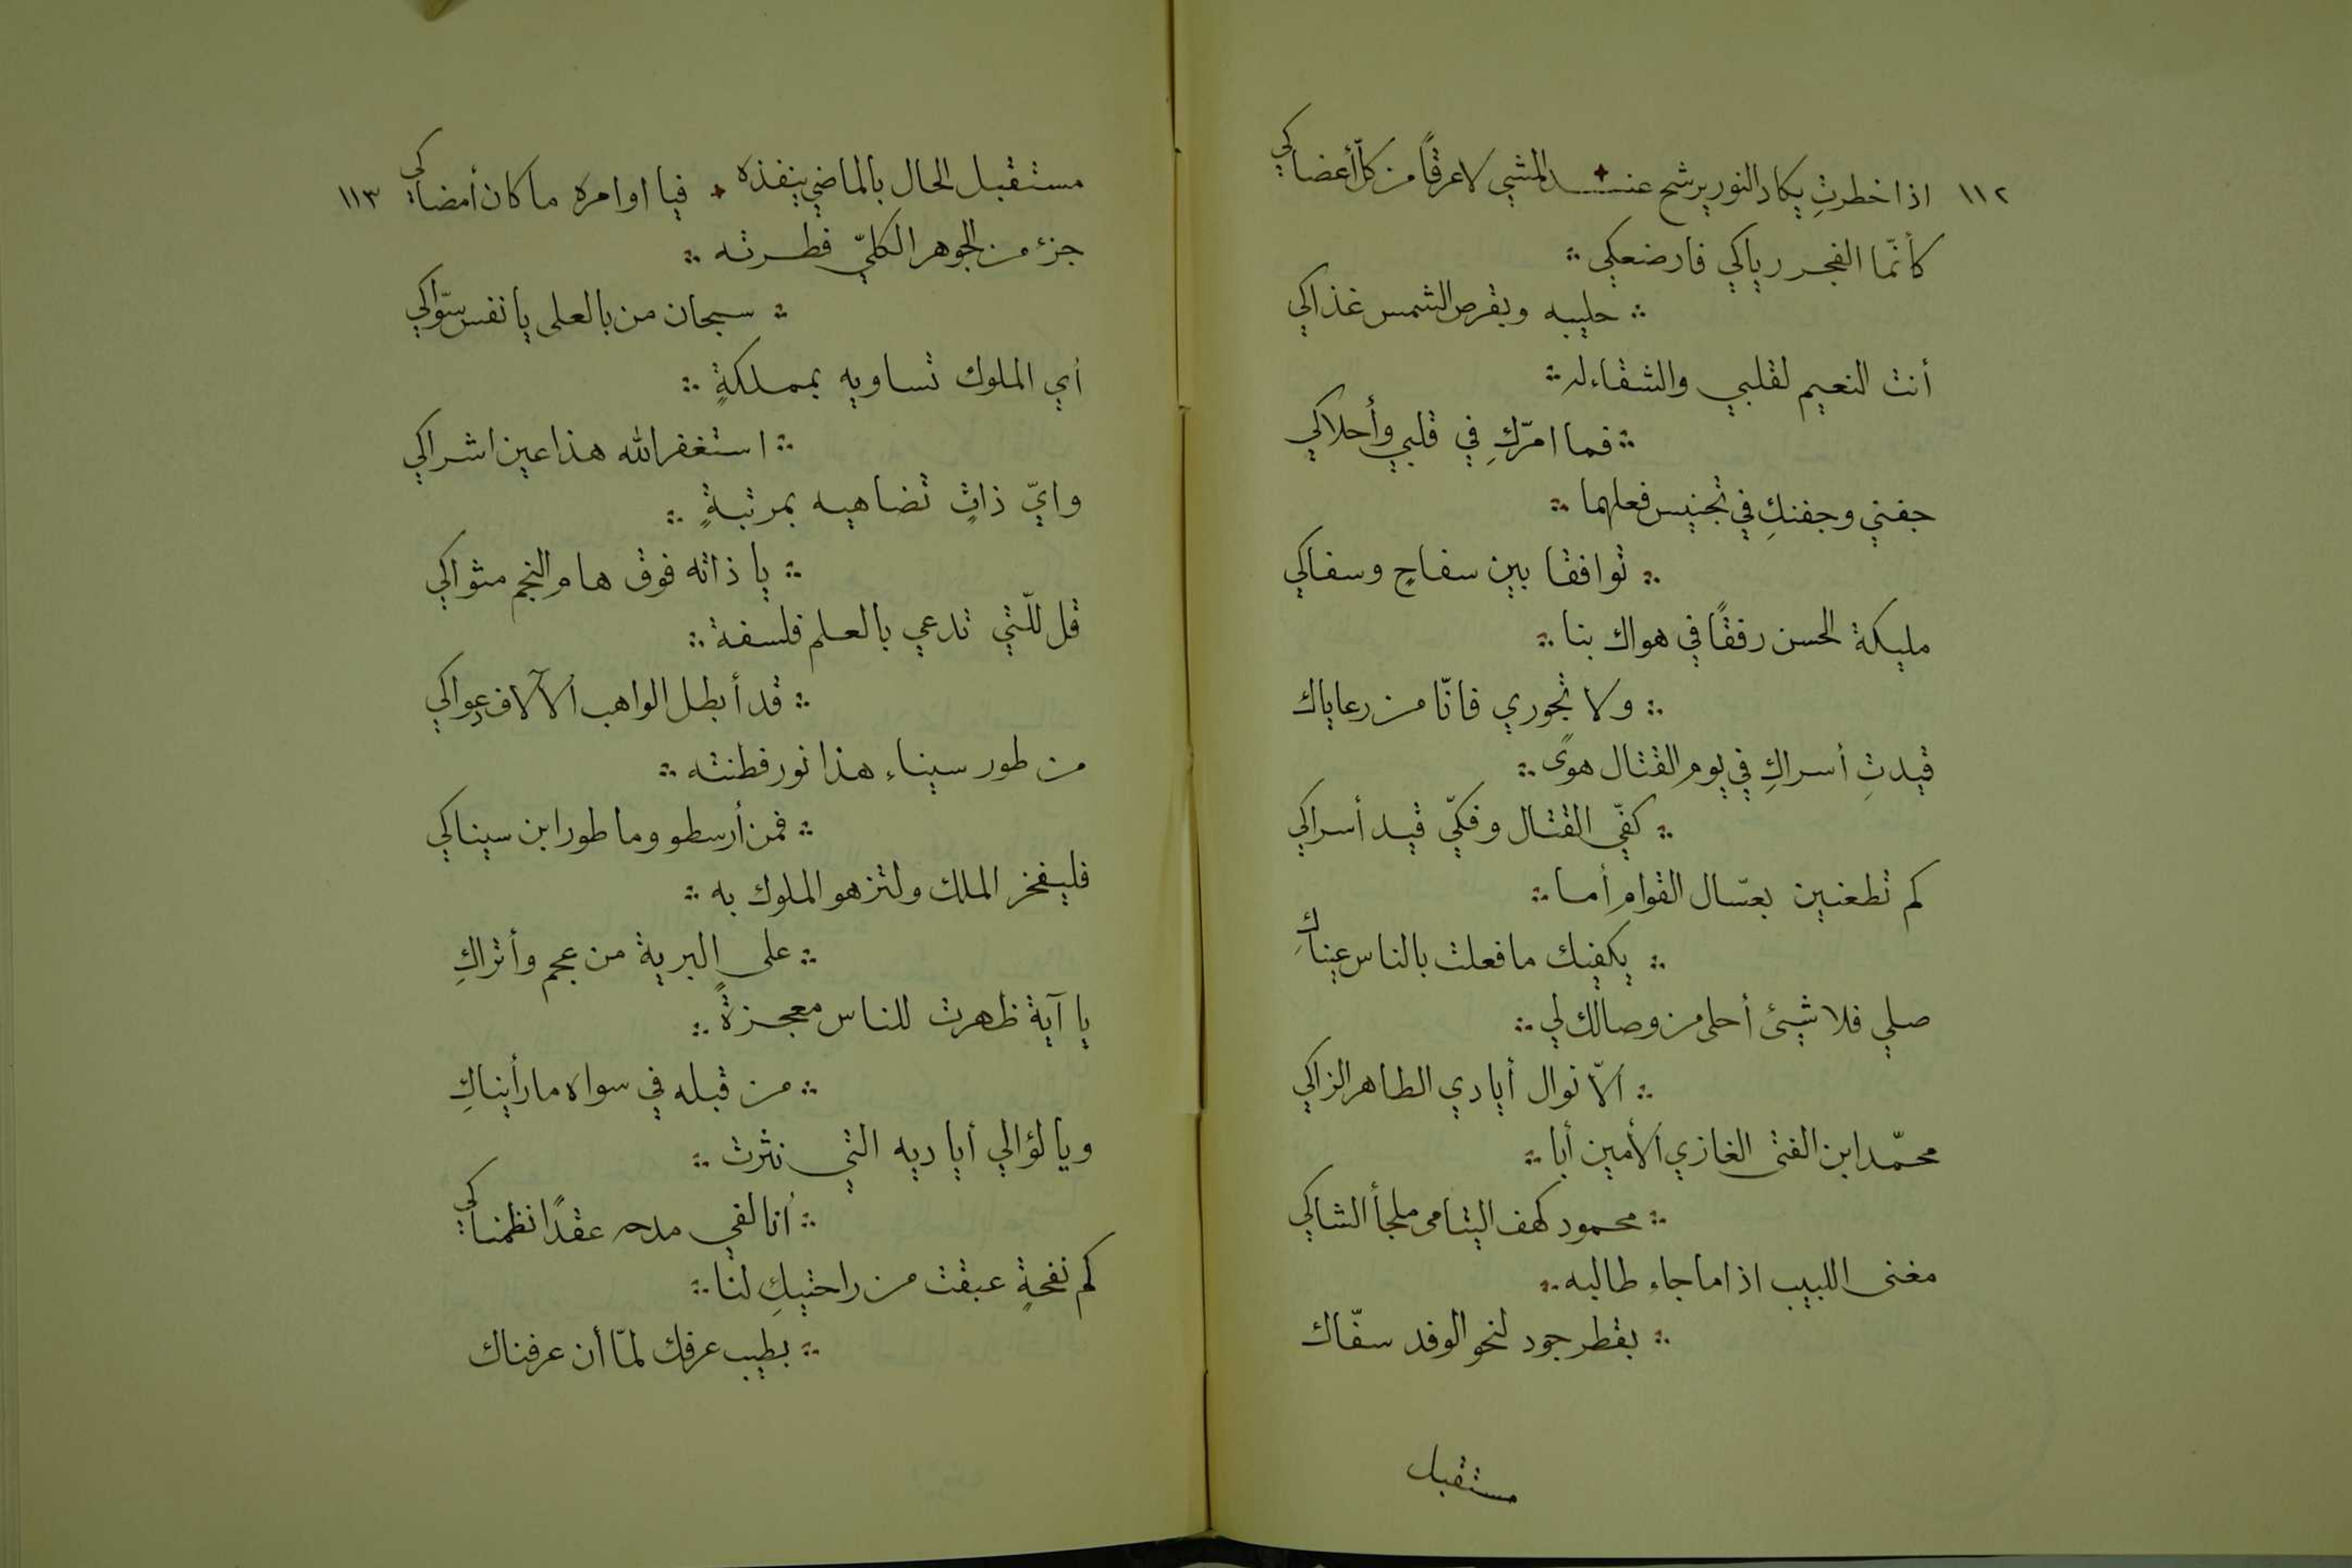 ١١٢ اذا خطرتِ يكاد النور يرشح عنـــد المشي لا عرقاً من كلّ أعضاكي
كأنّما الفجر رباكي فارضعكي
حليبه وبقرص الشمس غذاكي
أنت النعيم لقلبي والشقاء له
فما امرّكِ في قلبي وأحلاكي
جفني وجفنكِ في تجنيس فعلهما
توافقا بين سفاحٍ وسفاكي
مليكة الحسن رفقاً في هواك بنا
ولا تجوري فانّا من رعاياك
قيدتِ أسراكِ في يوم القتال هوىً
كفّي القتال وفكّي قيد أسراكي
كم تطعنين بعسّال القوامِ أما
يكفيك ما فعلت بالناس عيناكِ
صلي فلا شيئ أحلى من وصالك لي
الاّ نوال أيادي الطاهر الزاكي
محمّد ابن الفتى الغازي الأمين أبا
محمود كهف اليتامى ملجأ الشاكي
مغنى اللبيب اذا ما جاء طالبه
بقطر جود لنحو الوفد سفّاك
مستقبل
مستقبل الحال بالماضي ينفذه فيا اوامره ما كان أمضاكي ١١٣
جزء من الجوهر الكليّ فطرته
سبحان من بالعلى يا نفس سوّاكي
أي الملوك تساويه بمملكةٍ
استغفر الله هذا عين اشراكي
وايّ ذاتٍ تضاهيه بمرتبةٍ
يا ذاته فوق هام النجم مثواكي
قل للّتي تدعي بالعلم فلسفة
قد أبطل الواهب الآلاف دعواكي
من طور سيناء هذا نور فطنته
فمن أرسطو وما طور ابن سيناكي
فليفخر الملك ولتزهو الملوك به
على البرية من عجم وأتراكِ
يا آية ظهرت للناس معجزةً
من قبله في سواه ما رأيناكِ
ويا لؤالي أياديه التي نثرت
أنا لفي مدحه عقدًا نظمناكي
كم نفحةٍ عبقت من راحتيكِ لنا
بطيب عرفك لمّا أن عرفناك